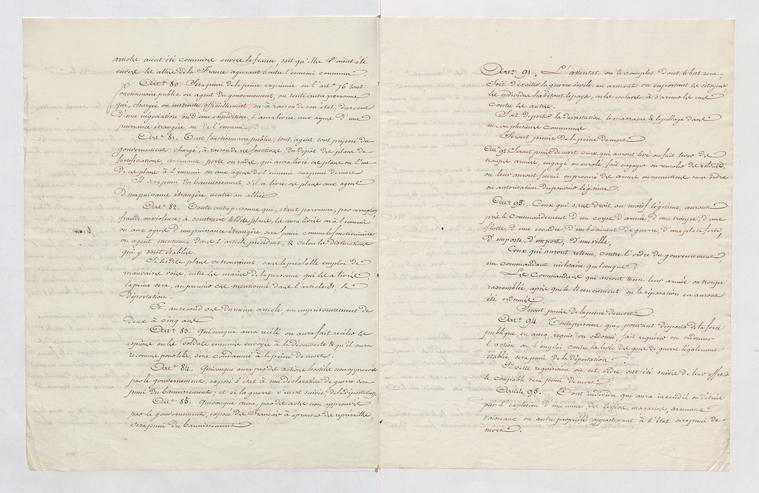 envers les alliés de la France agissant contre l'ennemi commun.
Art. 80. Sera puni de la peine exprimée en l'art. 76 tout
fonctionnaire public ou agent du gouvernement, ou toute autre personne
qui, chargée ou instruite officiellement ou à raison de son état, du secret
d'une négociation ou d'une expédition, l'aura livré aux agens d'une
puissance étrangère, ou de l'ennemi.
Art. 81. Tout fonctionnaire public, tout agent, tout préposé du
gouvernement chargé, à raison de ses fonctions du dépôt des plans de
fortifications, arsenaux, ports ou rades, qui aura livré ces plans ou l'un
de ces plans à l'ennemi ou aux agens de l'ennemi sera puni de mort
Il sera puni du bannissement, s'il a livré ces plans aux agens
d'une puissance étrangère, neutre ou alliée
Art. 82. Toute autre personne qui, étant parvenue, par corruption,
fraude ou violence, à soustraire les dits plans, les aura livrés ou à l'ennemi
ou aux agens d'une puissance étrangère, sera punie comme le fonctionnaire
ou agent mentionné dans l'article précédent, & selon les distinctions
qui y sont établies
Si les dits plans se trouvaient, sans le préalable emploi de
mauvaises voies, entre les mains de la personne qui les a livrés
la peine sera, au premier cas mentionné dans l'article 81 la
déportation
Et au second cas du même article, un emprisonnement de
deux à cinq ans
Art. 83. Quiconque aura recélé ou aura fait recéler les
espions ou les soldats ennemis envoyés à la découverte & qu'il aura
reconnus pour tels sera condamné à la peine de mort.
Art. 84. Quiconque aura, par des actions hostiles non approuvées
par le gouvernement, exposé l'état à une déclaration de guerre sera
puni du bannissement; et si la guerre s'en est suivie, de la déportation
Art. 85. Quiconque aura, par des actes non approuvés
par le gouvernement, exposé des Français à éprouver des représailles
sera puni du bannissement
Art. 91. L'attentat ou le complot dont le but sera
soit d'exciter la guerre civile en armant ou en portant les citoyens
ou habitans à s'armer les uns
contre les autres.
Soit de porter la dévastation, le massacre & le pillage dans
une ou plusieurs communes
Seront punis de la peine de mort
Seront punis de mort ceux qui auront levé ou fait lever des
troupes armées, engagé ou enrôlé, fait engager ou enrôler des soldats
ou leur auront fourni ou procuré des armes ou munitions sans ordre
ou autorisation du pouvoir légitime.
Art. 93. Ceux qui sans droit ou motif légitime, auront
pris le commandement d'un corps d'armée, d'une troupe, d'une
flotte, d'une escadre, d'un bâtiment de guerre, d'une place forte,
d'un poste, d'un port, d'une ville.
Ceux qui auront retenu, contre l'ordre du gouvernement
un commandement militaire quelconque.
Les Commandans qui auront tenu leur armée ou troupe
rassemblée, après que le licenciement ou la séparation en auront
été ordonnés
Seront punis de la peine de mort.
Art. 94. Toute personne qui, pouvant disposer de la force
publique en aura requis ou ordonné, fait requérir ou ordonner
l'action ou l'emploi contre la levée des gens de guerre légalement
établie sera punie de la déportation
Si cette réquisition ou cet ordre ont été suivis de leur effet
le coupable sera puni de mort.
Article 95. Tout individu qui aura incendié ou détruit
par l'explosion d'une mine des édifices, magasins, arsenaux
vaisseaux ou autres propriétés appartenant à l'état sera puni de
mort.